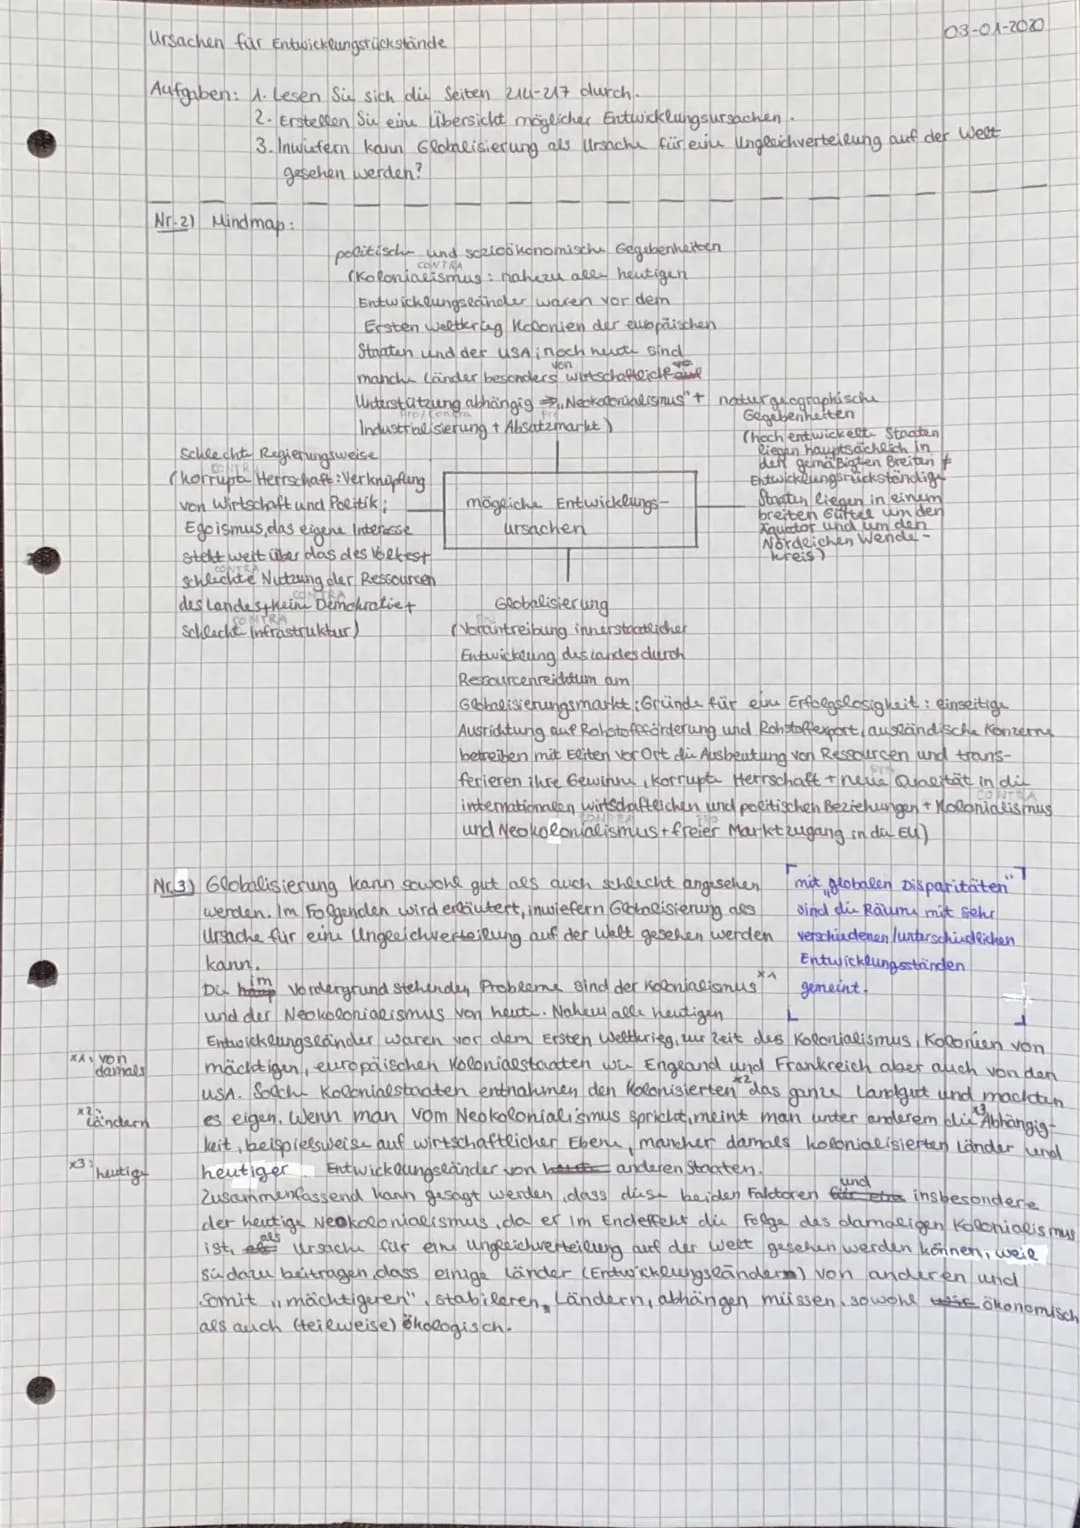 Ursachen für Entwicklungsrückstände
03-01-2020
Aufgaben: 1. Lesen Sie sich die Seiten 214-217 durch.
2. Erstellen Sie eine Übersicht möglicher Entwicklungsursachen.
3. Inwiefern kann Globalisierung als Ursache für eine Ungleichverteilung auf der Welt
gesehen werden?
Nr. 2) Mindmap:
politische und sozioökonomische Gegebenheiten
CONTRA
(Kolonialismus: nahezu alle heutigen
Entwicklungsländer waren vor dem
Ersten Weltkrieg Kolonien der europäischen
Staaten und der USA; noch heute sind
von
manche Länder besonders wirtschaftlich
Unterstützung abhängig → "Neokolonialismus" +
Pro/Contra
Industrialisierung + Absatzmarkt)
naturgeographische
Gegebenheiten
(hoch entwickelte Staaten
liegen hauptsächlich in
den gemäßigten Breiten ≠
Entwicklungsrückständige
Staaten liegen in einem
breiten Gürtel um den
Äquator und um den
Nördlichen Wende-
kreis)
Schlechte Regierungsweise
CONTRA
(korrupte Herrschaft: Verknüpfung
von Wirtschaft und Politik;
Egoismus, das eigene Interesse
steht weit über das des Volkes +
CONTRA
schlechte Nutzung der Ressourcen
CONTRA
des Landes + keine Demokratie +
CONTRA
schlecht Infrastruktur)
mögliche Entwicklungs-
ursachen
Globalisierung
(Vorantreibung innerstaatlicher
Entwicklung des Landes durch
Ressourcenreichtum am
Globalisierungsmarkt; Gründe für eine Erfolgslosigkeit: einseitige
Ausrichtung auf Rohstoffförderung und Rohstoffexport, ausländische Konzerne
betreiben mit Eliten vor Ort die Ausbeutung von Ressourcen und trans-
ferieren ihre Gewinne, korrupte Herrschaft + neue Qualität in die
CONTRA
internationalen wirtschaftlichen und politischen Beziehungen + Kolonialismus
CONTRA PRO
und Neokolonialismus + freier Marktzugang in die EU)
Nr. 3) Globalisierung kann sowohl gut als auch schlecht angesehen
werden. Im Folgenden wird erläutert, inwiefern Globalisierung als
Ursache für eine Ungleichverteilung auf der Welt gesehen werden
kann.
mit "globalen Disparitäten"
sind die Räume mit sehr
verschiedenen/unterschiedlichen
Entwicklungsständen
gemeint.
im x1
Die Vordergrund stehenden Probleme sind der Kolonialismus
und der Neokolonialismus von heute. Nahezu alle heutigen
Entwicklungsländer waren vor dem Ersten Weltkrieg, zur Zeit des Kolonialismus, Kolonien von
x1: von
damals
mächtigen, europäischen Kolonialstaaten wie England und Frankreich aber auch von den
x2
USA. Solche Kolonialstaaten entnahmen den Kolonisierten das ganze Landgut und machten
x2:
Ländern
x3
es eigen. Wenn man vom Neokolonialismus spricht, meint man unter anderem die Abhängig-
keit, beispielsweise auf wirtschaftlicher Ebene, mancher damals kolonialisierten Länder und
x3: heutige
heutiger Entwicklungsländer von anderen Staaten.
und
Zusammenfassend kann gesagt werden, dass diese beiden Faktoren insbesondere
der heutige Neokolonialismus, da er im Endeffekt die Folge des damaligen Kolonialismus
als
ist, Ursache für eine Ungleichverteilung auf der Welt gesehen werden können, weil
sie dazu beitragen, dass einige Länder (Entwicklungsländer) von anderen und
somit "mächtigeren", stabileren, Ländern, abhängen müssen, sowohl ökonomisch
als auch (teilweise) ökologisch.